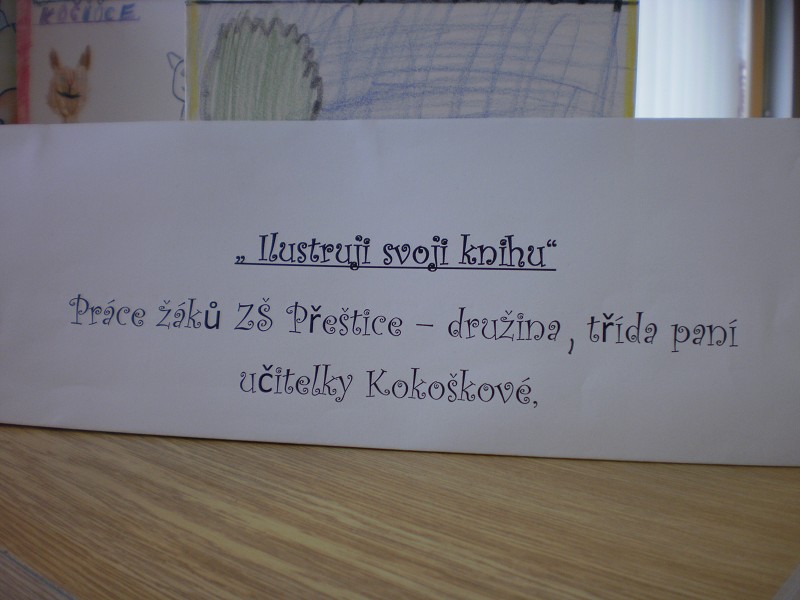 KOČIČCE
„ Ilustruji svoji knihu“
Práce žáků ZŠ Přeštice – družina, třída paní
učitelky Kokoškové,